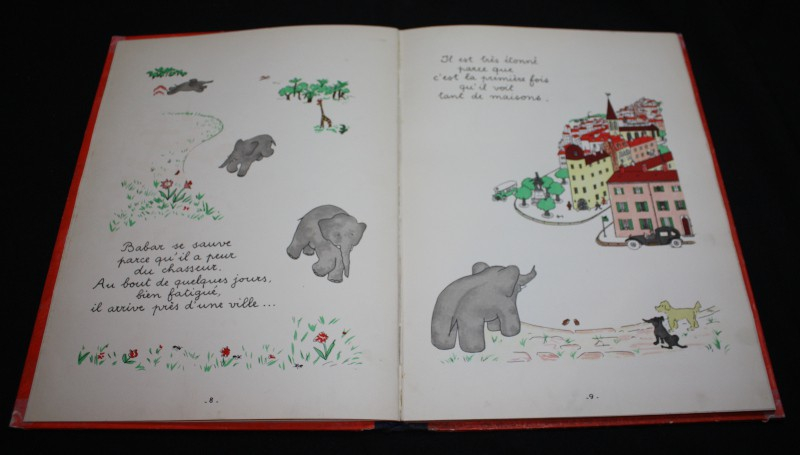 Babar se sauve
parce qu'il a peur
du chasseur.
Au bout de quelques jours,
bien fatigué,
il arrive près d'une ville...
. 8 .
Il est très étonné
parce que
c'est la première fois
qu'il voit
tant de maisons.
. 9 .